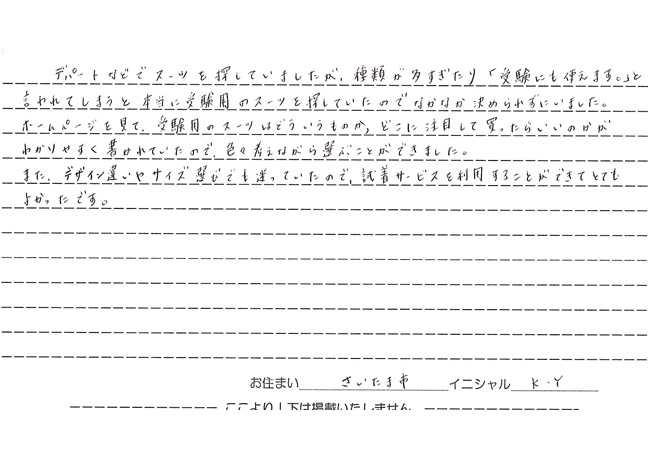 デパートなどでスーツを探していましたが、種類が多すぎたり「受験にも使えます。」と
言われてしまうと本当に受験用のスーツを探していたのでなかなか決められずにいました。
ホームページを見て、受験用のスーツはどういうものか、どこに注目して買ったらいいのかが
わかりやすく書かれていたので、色々考えながら選ぶことができました。
また、デザイン違いやサイズ選びでも迷っていたので、試着サービスを利用することができてとても
よかったです。
お住まい さいたま市 イニシャル K.Y
ここより下は掲載いたしません